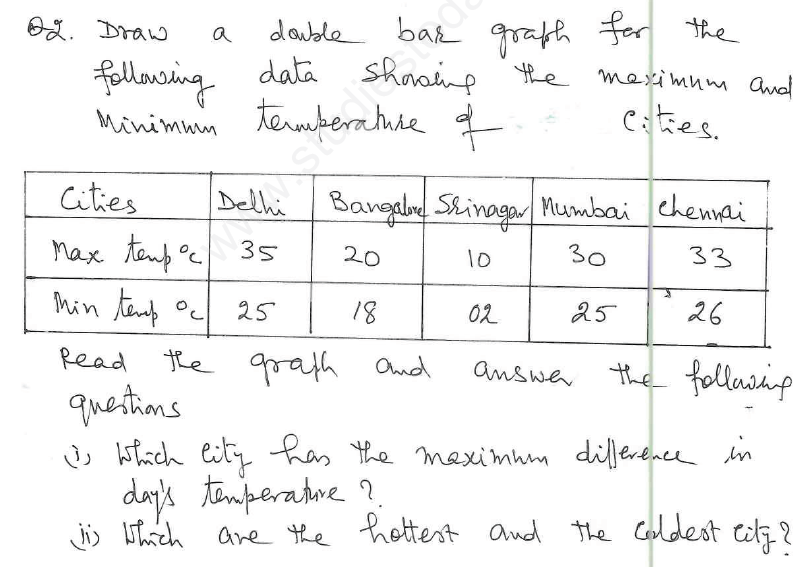 Q2. Draw a double bar graph for the
following data showing the maximum and
Minimum temperature of cities.
Cities Delhi Bangalore Srinagar Mumbai Chennai
Max temp °c 35 20 10 30 33
Min temp °c 25 18 02 25 26
Read the graph and answer the following
questions
(i) Which city has the maximum difference in
day's temperature?
(ii) Which are the hottest and the coldest city?